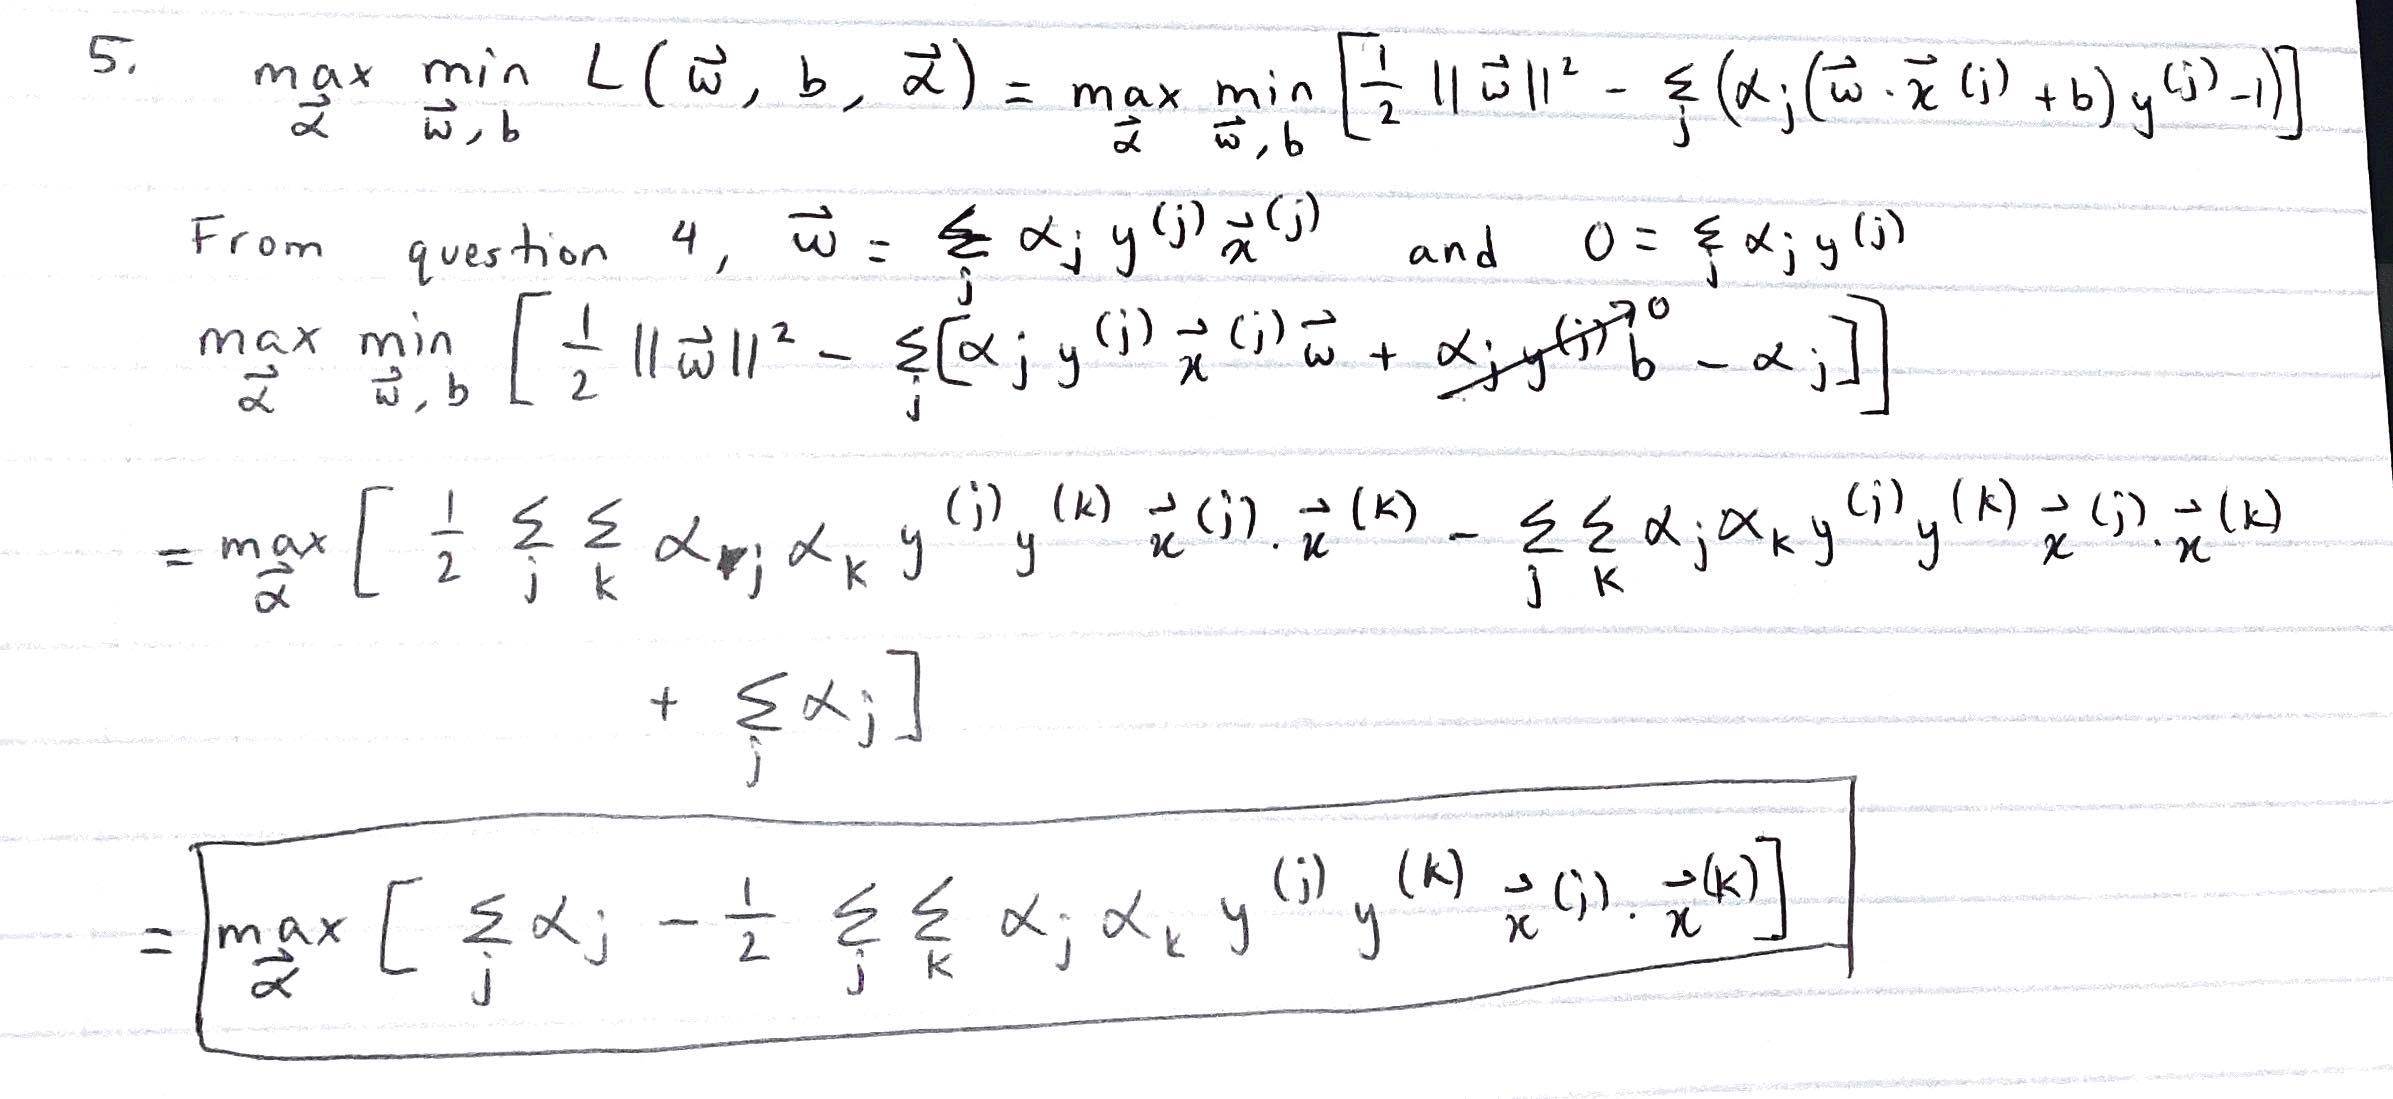 5. max_α⃗ min_w⃗,b L(w⃗, b, α⃗) = max_α⃗ min_w⃗,b [1/2 ||w⃗||² - Σ_j (α_j(w⃗·x⃗^(j) + b) y^(j) - 1)]
From question 4, w⃗ = Σ_j α_j y^(j) x⃗^(j) and 0 = Σ_j α_j y^(j)
max_α⃗ min_w⃗,b [1/2 ||w⃗||² - Σ_j [α_j y^(j) x⃗^(j) w⃗ + α_j y^(j) b → 0 - α_j]]
= max_α⃗ [1/2 Σ_j Σ_k α_j α_k y^(j) y^(k) x⃗^(j)·x⃗^(k) - Σ_j Σ_k α_j α_k y^(j) y^(k) x⃗^(j)·x⃗^(k)
+ Σ_j α_j]
= max_α⃗ [Σ_j α_j - 1/2 Σ_j Σ_k α_j α_k y^(j) y^(k) x⃗^(j)·x⃗^(k)]